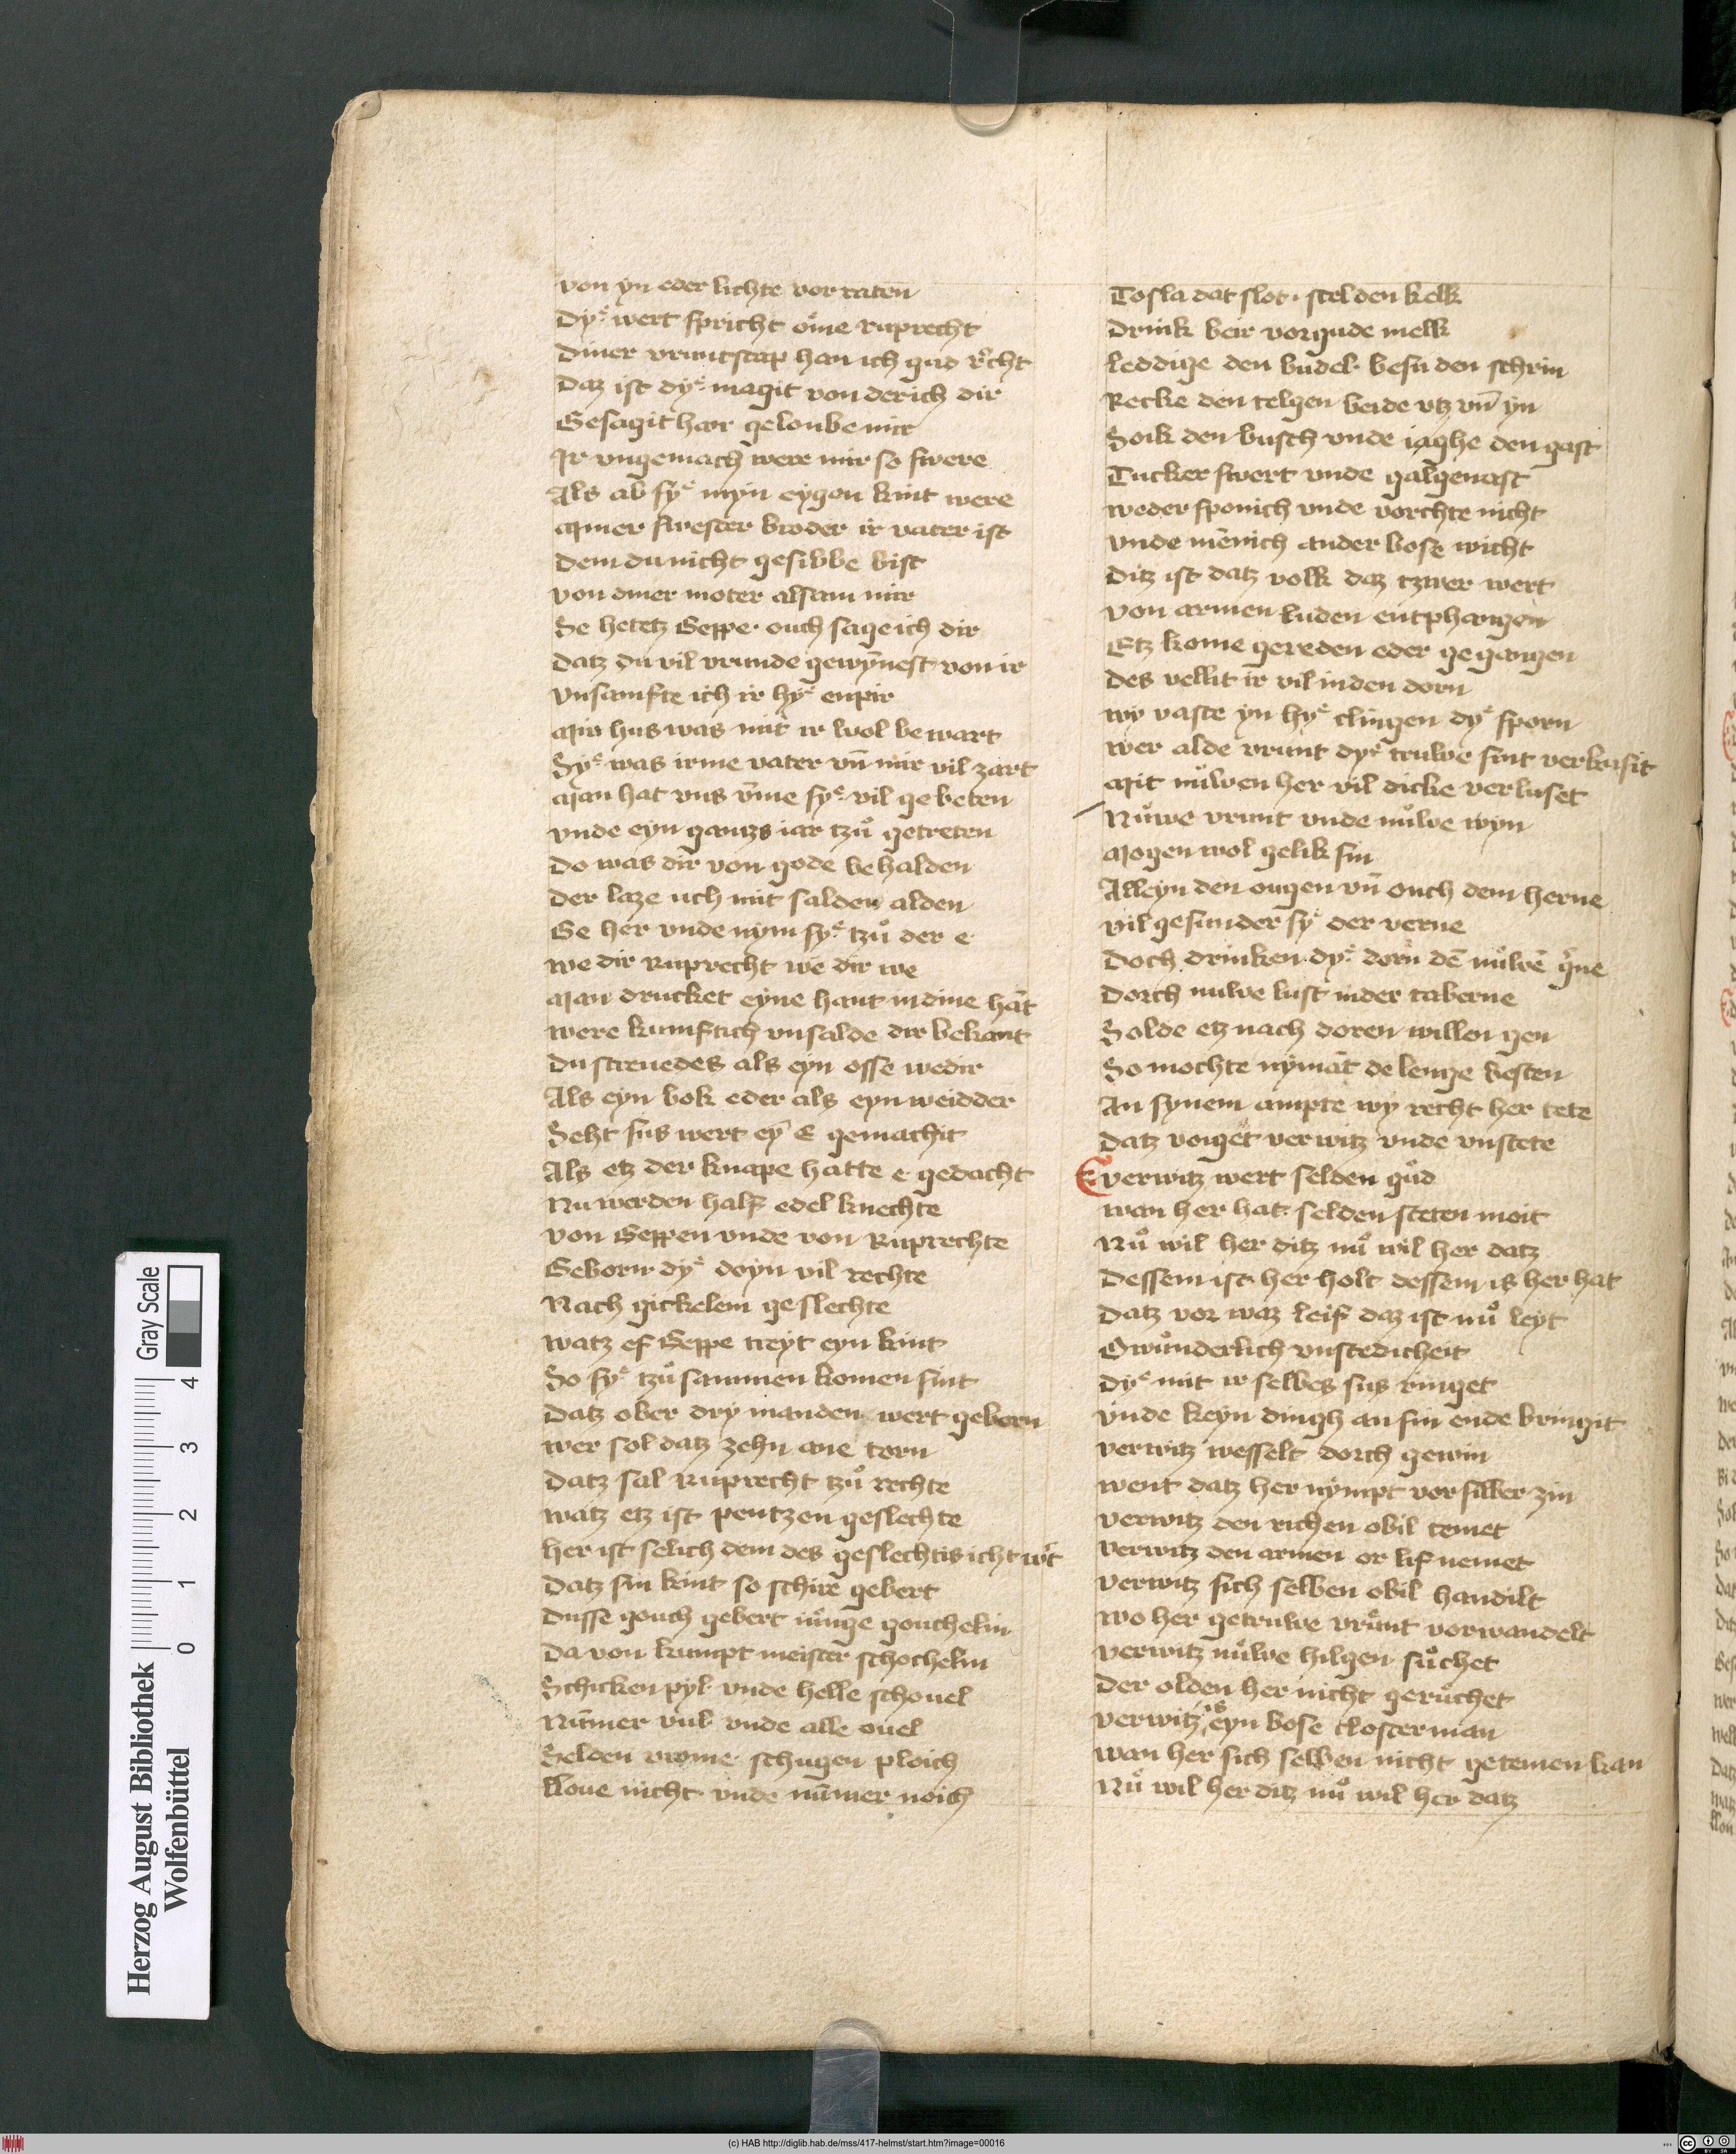 von yn eder lichte vor raten
Dyͤ wert spricht oͤme ruprecht
Diner vruntscap han ich gud rͤcht
Daz ist dyͤ magit von der ich dir
Gesagit har geloube mir
Ir vngemach were mir so swere
Als ab syͤ myn eygen kint were
Miner swester broder ir vater ist
Dem du nicht gesibbe bist
von diner moter alsam mir
Se hetetz Geppe. ouch sage ich dir
Datz du vil vrunde gewȳnest von ir
vnsamfte ich ir hyͤ enpir
Min hus was mit ir wol bewart
Syͤ was irme vater vn̄ mir vil zart
Man hat vns v̄me syͤ vil gebeten
vnde eyn gantzs iar tzuͦ getreten
Do was dir von gode behalden
Der laze uch mit salden alden
Ge her vnde nym syͤ tzuͦ der e
we dir Ruprecht we dir we
Man drucket eyne hant in dine hāt
were kumftich vnsalde dir bekant
Du streuedes als eyn osse wedir
Als eyn bok eder als eyn weidder
Seht sus wert eȳ E gemachit
Als etz der knape hatte e gedacht
Nu werden half edel knechte
von Geppen vnde von Ruprechte
Geborn dyͤ doyn vil rechte
Nach gickelem geslechte
watz ef Geppe treyt eyn kint
So syͤ tzuͦ sammen komen sint
Datz ober dry manden wert geborn
wer sol datz zehn ane torn
Datz sal Ruprecht tzuͦ rechte
watz etz ist pentzen geslechte
her ist selich dem des geslechtis icht wͤt
Datz sin kint so schire gebert
Dusse gouch gebert iuͦnge gouchelin
Da von kumpt meister schochelin
Schicken pyl vnde helle schouel
Num̄er vul vnde alle ouel
Selden vrome schugen ploich
lloue nicht vnde num̄er noich
To sla dat slot. stel den kelk
Drink beir vorgude melk
leddige den budel. besu den schrin
Recke den telgen beide vtz vn̄ yn
Soik den busch vnde iaghe den gast
Tucker swert vnde galgenast
weder sponich vnde vorchte nicht
vnde mēnich ander bose wicht
Ditz ist datz volk daz tzwer wert
von armen luden entphangen
Etz kome gereden oder gegangen
Des vellit ir vil in den dorn
wy vaste yn hyͤ clingen dyͤ sporn
wer alde vrunt dyͤ truwe sint verkusit
Mit nuͦwen her vil dicke verluset
Nuͦwe vrunt vnde nuͦwe wyn
Mogen wol gelik sin
Alleyn den ougen vn̄ ouch dem herne
vil gesunder syͤ der verne
Doch drinken dyͤ dorn dē nuͦwē gͤne
Dorch nuwe lust in der taberne
Solde etz nach doren willen gen
So mochte nymāt de lenge besten
An synem ampte wy recht her tete
Datz voiget verwitz vnde vnstete
verwitz wert selden guͦd
wan her hat selden steten moit
Nuͦ wil her ditz nuͦ wil her datz
Dessem ist her holt dessem is her hat
Datz vor waz leif daz ist nuͦ leyt
O wuͦnderlich vnstedicheit
Dyͤ mit ir selbes sus ringet
vnde keyn dingh an sin ende bringit
verwitz wesselt dorch gewin
went datz her nympt vor silber zin
verwitz den richen obil temet
verwitz den armen or lif nemet
verwitz sich selben obil handilt
wo her getruwe vruͦnt vorwandelt
verwitz nuͦwe hilgen suͦchet
Der olden her nicht geruͦchet
verwitz is eyn bose closterman
wan her sich selben nicht getemen kan
Nuͦ wil her ditz nuͦ wil her datz
Herzog August Bibliothek
Wolfenbüttel
0 1 2 3 4
Gray Scale
(c) HAB http://diglib.hab.de/mss/417-helmst/start.htm?image=00016